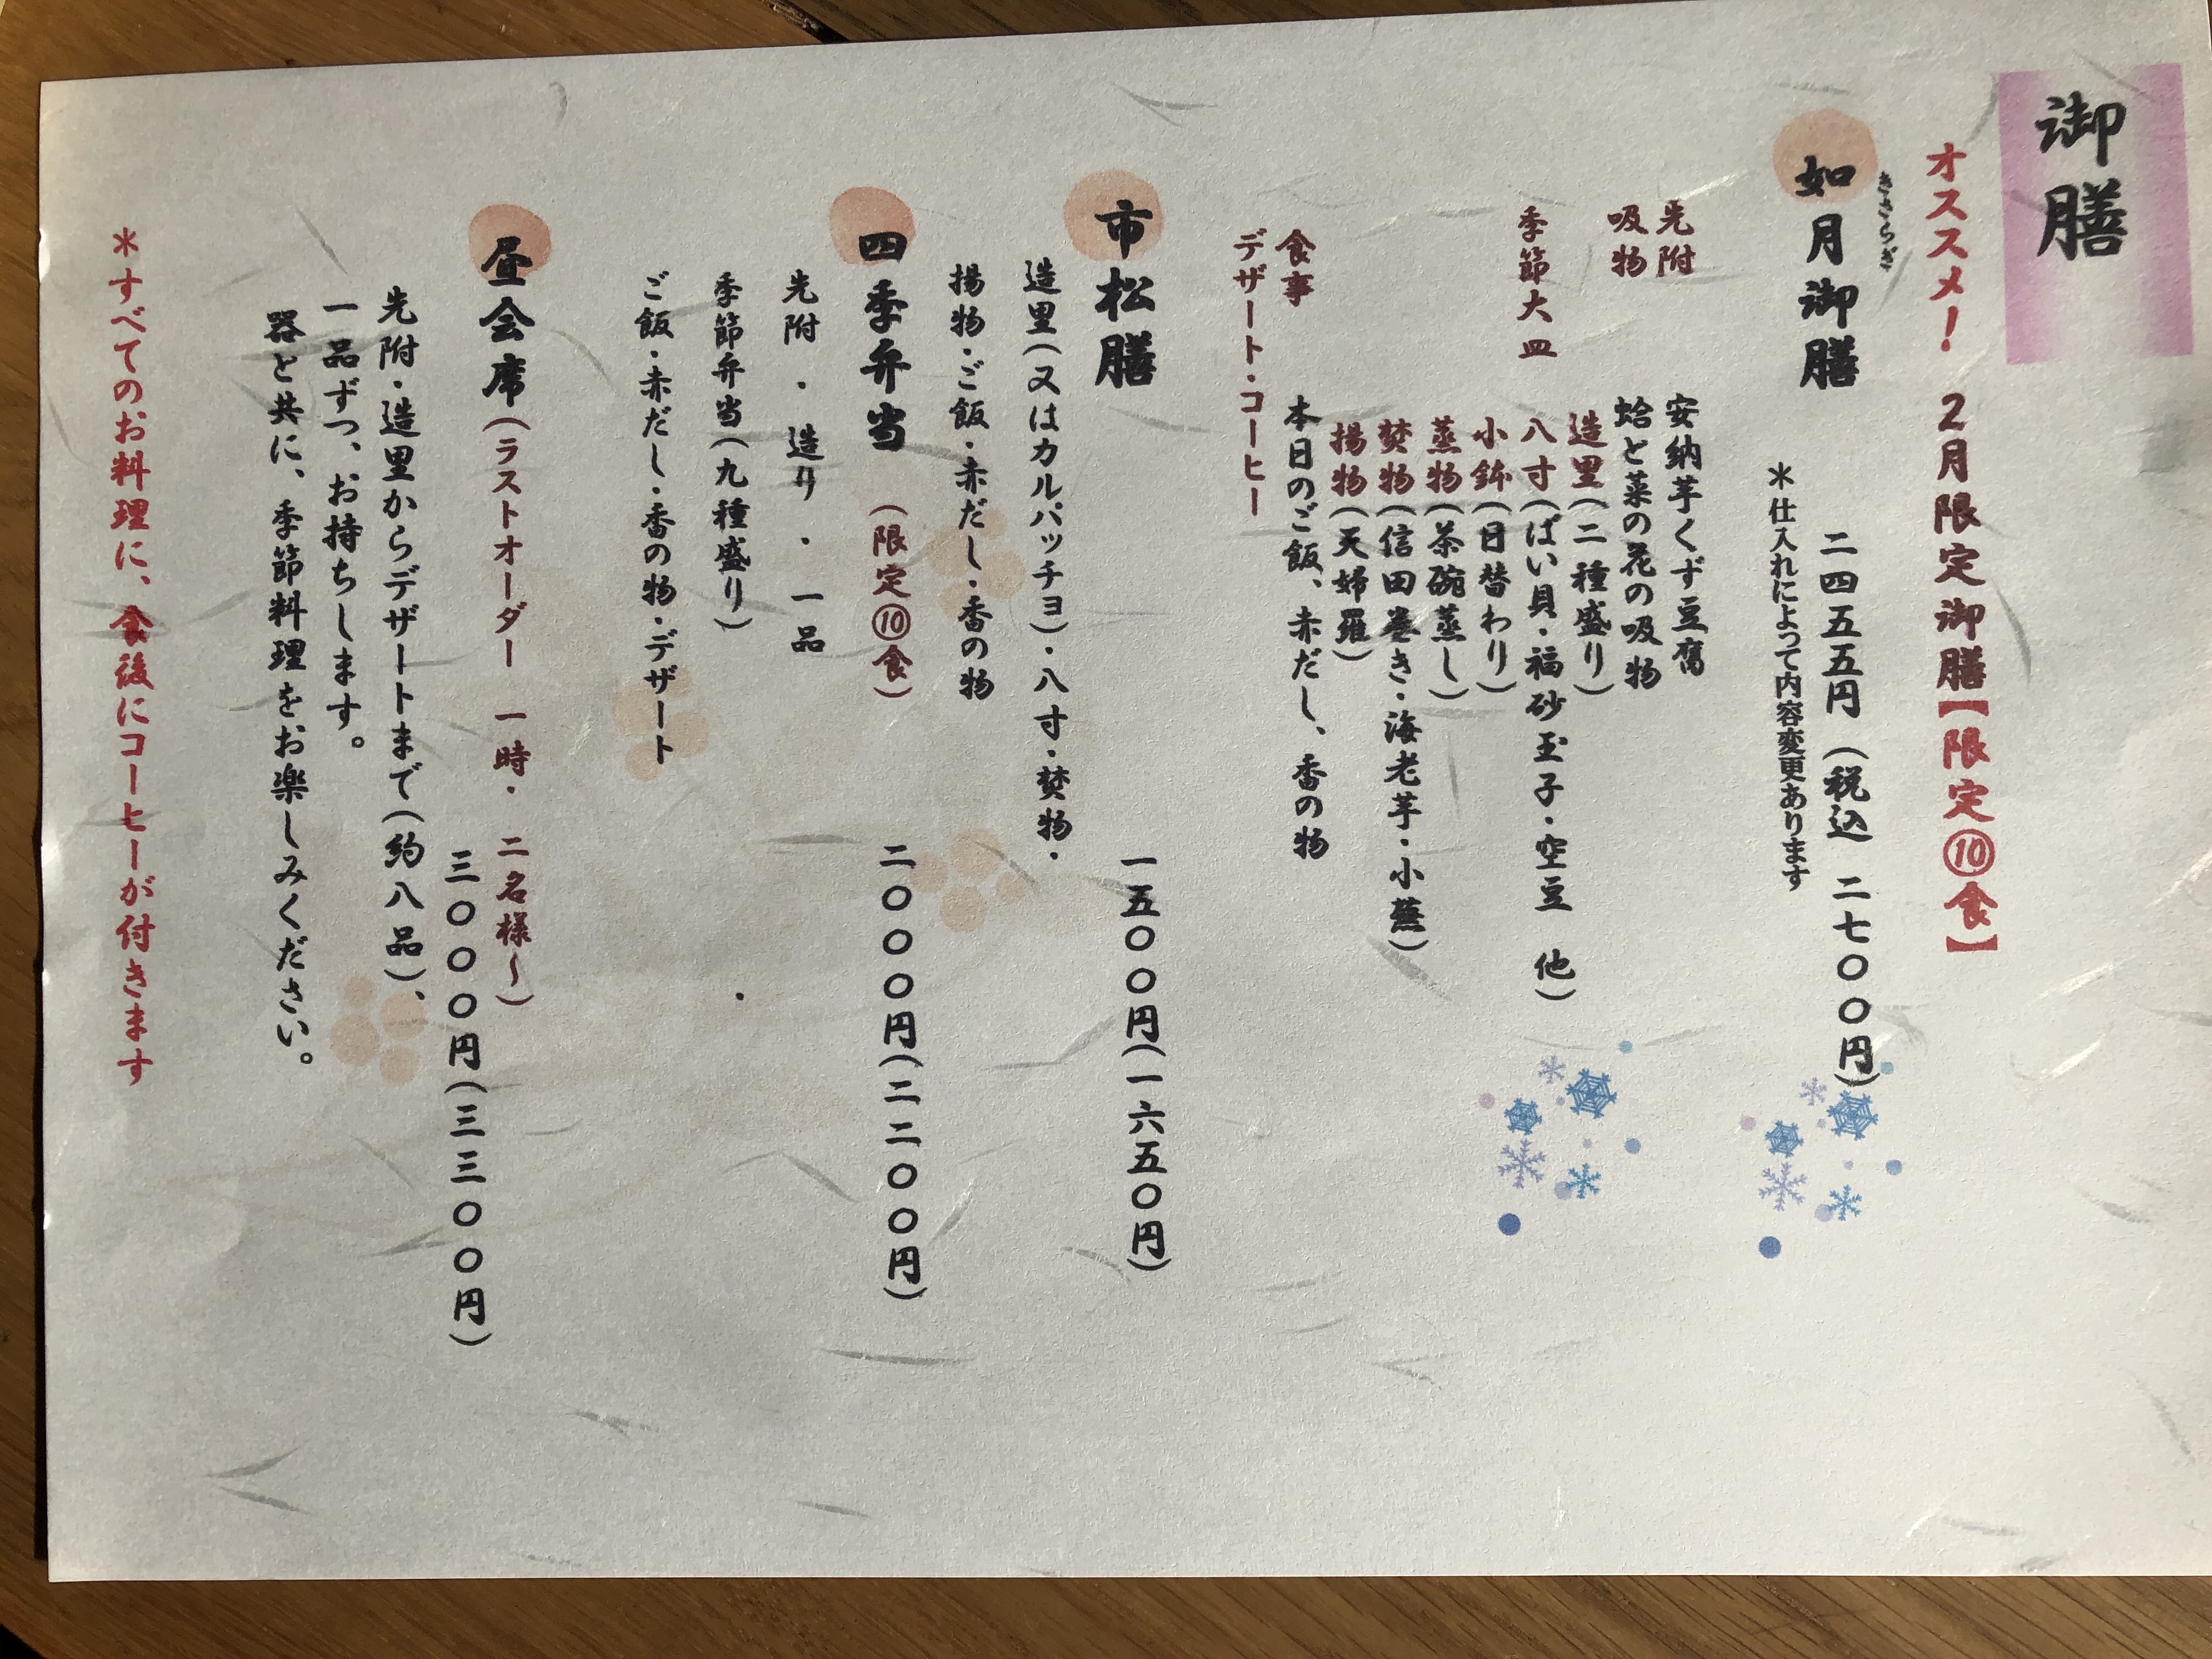 御膳
オススメ！ 2月限定御膳【限定⑩食】
きさらぎ
如月御膳
二四五五円（税込 二七〇〇円）
＊仕入れによって内容変更あります
先附 安納芋くず豆腐
吸物 蛤と菜の花の吸物
造里（二種盛り）
季節大皿 八寸（ばい貝・福砂玉子・空豆 他）
小鉢（日替わり）
蒸物（茶碗蒸し）
焚物（信田巻き・海老芋・小蕪）
揚物（天婦羅）
食事 本日のご飯、赤だし、香の物
デザート・コーヒー
市松膳 一五〇〇円（一六五〇円）
造里（又はカルパッチョ）・八寸・焚物・
揚物・ご飯・赤だし・香の物
四季弁当 （限定⑩食） 二〇〇〇円（二二〇〇円）
先附 ・ 造り ・ 一品
季節弁当（九種盛り）
ご飯・赤だし・香の物・デザート
昼会席（ラストオーダー 一時・ 二名様～）
三〇〇〇円（三三〇〇円）
先附・造里からデザートまで（約八品）、
一品ずつ、お持ちします。
器と共に、季節料理をお楽しみください。
＊すべてのお料理に、食後にコーヒーが付きます